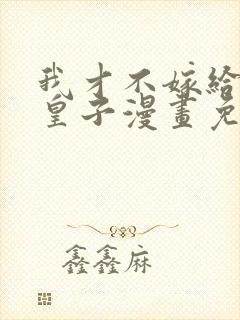 我才不嫁給
皇子漫畫免
鑫鑫麻